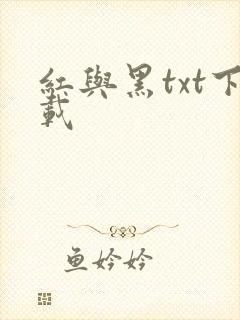 紅與黑txt下
載
魚妗妗